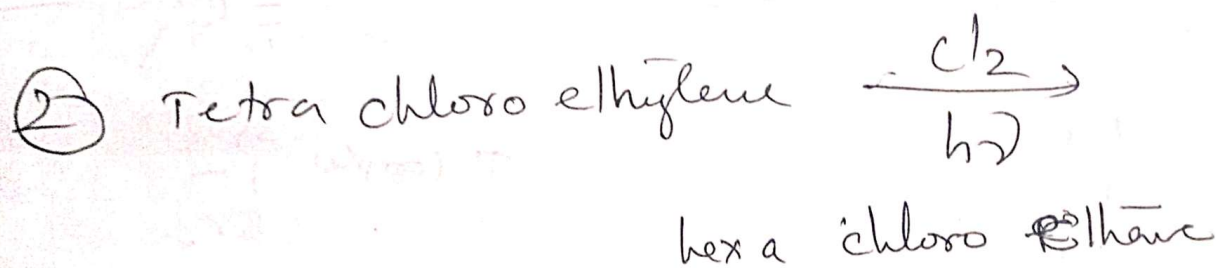 ② Tetra chloro ethylene Cl2
hν
hexa chloro Ethane